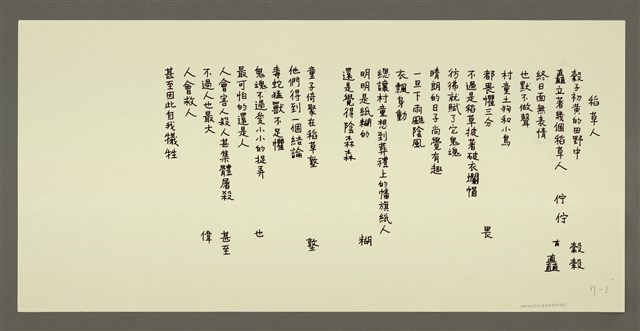 稻草人
穀子初黃的田野中
矗立著幾個稻草人
終日面無表情
也默不做聲
村童土狗和小鳥
都畏懼三分
不過是稻草披着破衣爛帽
彷彿就賦了它鬼魂
晴朗的日子尚覺有趣
一旦下雨颳陰風
衣飄身動
總讓村童想到葬禮上的幡旗紙人
明明是紙糊的
還是覺得陰森森
童子倚聚在稻草墊
他們得到一個結論
毒蛇猛獸不足懼
鬼魂不過受小小的捉弄
最可怕的還是人
人會害人殺人甚集體屠殺
不過人也最大
人會救人
甚至因此自我犧牲
穀穀
佇佇
矗
畏
糊
墊
也
甚至
偉
7-1